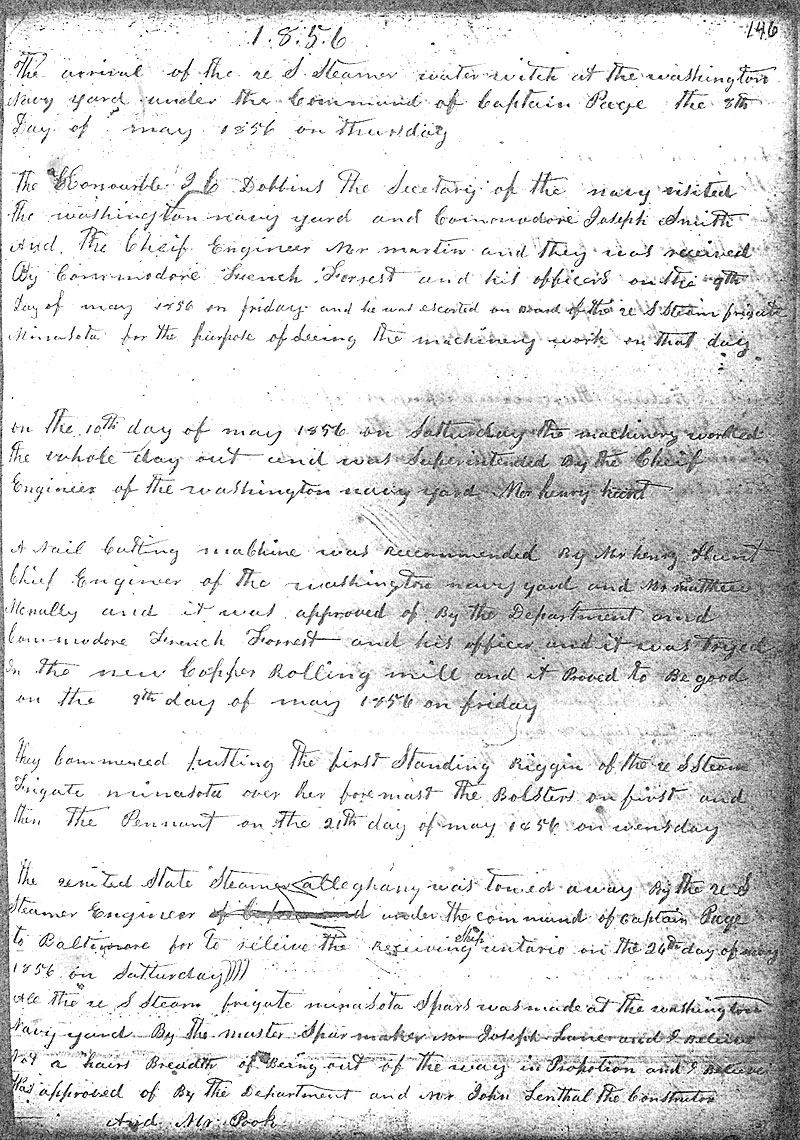 146
1.8.5.6
The arrival of the u S Steamer water witch at the washington
Navy yard under the Command of Captain Page the 8th
Day of may 1856 on thursday
The Honourble J C Dobbins The Secetary of the navy visited
the washington navy yard and Commodore Joseph Smith
And The Cheif Engineer Mr martin and they was received
By Commodore French Forrest and his officers on the 9th
Day of may 1856 on friday and he was escorted on Board of the u S Steam frigate
Minasota for the purpose of Seeing the machinery work on that day
on the 10th day of may 1856 on Satturday the machinery worked
the whole day out and was Superintended By the Cheif
Engineer of the washington navy yard Mr henry hunt
A Nail Cutting machine was Reccommended By Mr henry Hunt
Chief Engineer of the washington navy yard and Mr matthew
Mcnally and it was approved of By the Department and
Commodore French Forrest and his officer and it was tryed
In the new Copper Rolling mill and it Proved to Be good
on the 9th day of may 1856 on friday
They Commenced putting the first Standing Riggin of the u S Steam
Frigate minasota over her foremast the Bolsters on first and
then the Pennant on the 21th day of may 1856 on wensday
the united State Steamer alleghany was towed away By the u S
Steamer Engineer under the command of Captain Page
to Baltimore for to releive the Receiving Ship ontario on the 24th day of may
1856 on Satturday))))
All the u S Steam frigate minasota Spars was made at the washington
Navy yard By the master Spar maker mr Joseph Lane and I Believe
Not a hairs Breadth of Being out of the way in Propotion and I Believe
Was approved of By the Department and Mr John Lenthal the Constructor
And Mr Pook